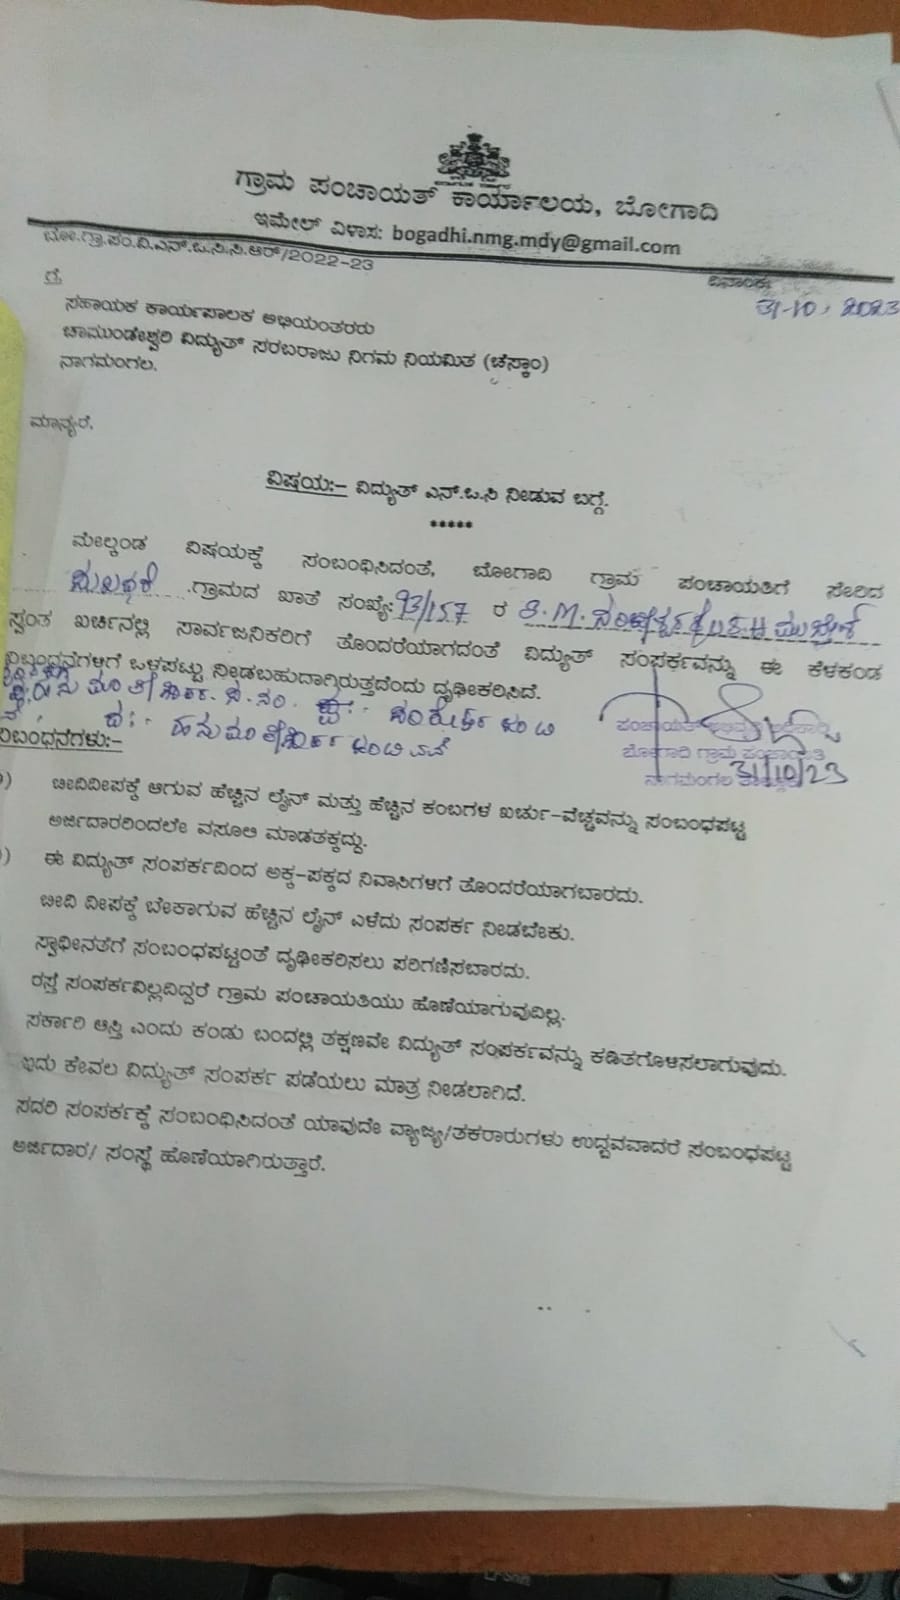 ಗ್ರಾಮ ಪಂಚಾಯತ್ ಕಾರ್ಯಾಲಯ, ಬೋಗಾದಿ
ಇಮೇಲ್ ವಿಳಾಸ: bogadhi.nmg.mdy@gmail.com
ಬೋ.ಗ್ರಾ.ಪಂ.ವಿ.ಎನ್.ಒ.ಸಿ.ಸಿ.ಆರ್/2022-23
ದಿನಾಂಕ:
31-10-2023
ಗೆ,
ಸಹಾಯಕ ಕಾರ್ಯಪಾಲಕ ಅಭಿಯಂತರರು
ಚಾಮುಂಡೇಶ್ವರಿ ವಿದ್ಯುತ್ ಸರಬರಾಜು ನಿಗಮ ನಿಯಮಿತ (ಚೆಸ್ಕಾಂ)
ನಾಗಮಂಗಲ.
ಮಾನ್ಯರೆ,
ವಿಷಯ:- ವಿದ್ಯುತ್ ಎನ್.ಒ.ಸಿ ನೀಡುವ ಬಗ್ಗೆ.
*****
ಮೇಲ್ಕಂಡ ವಿಷಯಕ್ಕೆ ಸಂಬಂಧಿಸಿದಂತೆ, ಬೋಗಾದಿ ಗ್ರಾಮ ಪಂಚಾಯತಿಗೆ ಸೇರಿದ
ಗ್ರಾಮದ ಖಾತೆ ಸಂಖ್ಯೆ: 93/157 ರ
ಸ್ವಂತ ಖರ್ಚಿನಲ್ಲಿ ಸಾರ್ವಜನಿಕರಿಗೆ ತೊಂದರೆಯಾಗದಂತೆ ವಿದ್ಯುತ್ ಸಂಪರ್ಕವನ್ನು ಈ ಕೆಳಕಂಡ
ನಿಬಂಧನೆಗಳಿಗೆ ಒಳಪಟ್ಟು ನೀಡಬಹುದಾಗಿರುತ್ತದೆಂದು ದೃಢೀಕರಿಸಿದೆ.
ಬೋಗಾದಿ ಗ್ರಾಮ ಪಂಚಾಯತಿ
31/10/23
ನಿಬಂಧನೆಗಳು:-
ಬೀದಿದೀಪಕ್ಕೆ ಆಗುವ ಹೆಚ್ಚಿನ ಲೈನ್ ಮತ್ತು ಹೆಚ್ಚಿನ ಕಂಬಗಳ ಖರ್ಚು-ವೆಚ್ಚವನ್ನು ಸಂಬಂಧಪಟ್ಟ
ಅರ್ಜಿದಾರರಿಂದಲೇ ವಸೂಲಿ ಮಾಡತಕ್ಕದ್ದು.
ಈ ವಿದ್ಯುತ್ ಸಂಪರ್ಕದಿಂದ ಅಕ್ಕ-ಪಕ್ಕದ ನಿವಾಸಿಗಳಿಗೆ ತೊಂದರೆಯಾಗಬಾರದು.
ಬೀದಿ ದೀಪಕ್ಕೆ ಬೇಕಾಗುವ ಹೆಚ್ಚಿನ ಲೈನ್ ಎಳೆದು ಸಂಪರ್ಕ ನೀಡಬೇಕು.
ಸ್ವಾಧೀನತೆಗೆ ಸಂಬಂಧಪಟ್ಟಂತೆ ದೃಢೀಕರಿಸಲು ಪರಿಗಣಿಸಬಾರದು.
ರಸ್ತೆ ಸಂಪರ್ಕವಿಲ್ಲದಿದ್ದರೆ ಗ್ರಾಮ ಪಂಚಾಯತಿಯು ಹೊಣೆಯಾಗುವುದಿಲ್ಲ.
ಸರ್ಕಾರಿ ಆಸ್ತಿ ಎಂದು ಕಂಡು ಬಂದಲ್ಲಿ ತಕ್ಷಣವೇ ವಿದ್ಯುತ್ ಸಂಪರ್ಕವನ್ನು ಕಡಿತಗೊಳಿಸಲಾಗುವುದು.
ಇದು ಕೇವಲ ವಿದ್ಯುತ್ ಸಂಪರ್ಕ ಪಡೆಯಲು ಮಾತ್ರ ನೀಡಲಾಗಿದೆ.
ಸದರಿ ಸಂಪರ್ಕಕ್ಕೆ ಸಂಬಂಧಿಸಿದಂತೆ ಯಾವುದೇ ವ್ಯಾಜ್ಯ/ತಕರಾರುಗಳು ಉದ್ಭವವಾದರೆ ಸಂಬಂಧಪಟ್ಟ
ಅರ್ಜಿದಾರ/ ಸಂಸ್ಥೆ ಹೊಣೆಯಾಗಿರುತ್ತಾರೆ.